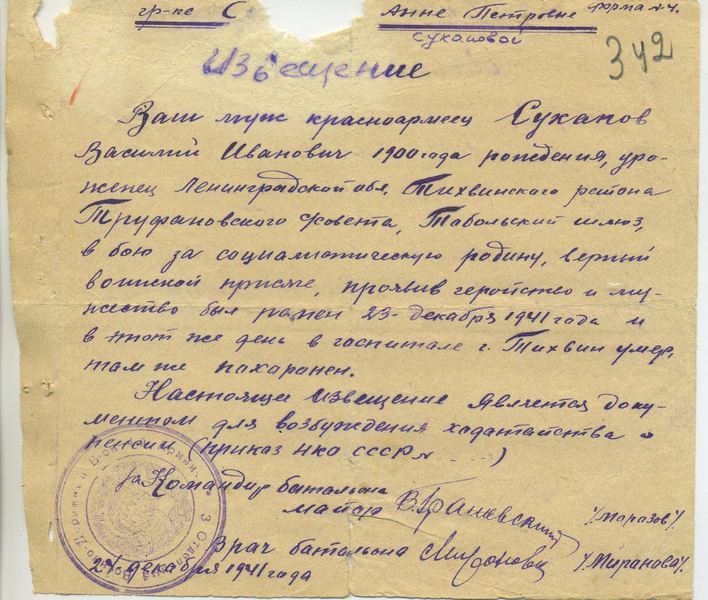 гр-ке С Анне Петровне форма № 4.
Сухановой
342
Извещение
Ваш муж красноармеец Суханов
Василий Иванович 1900 года рождения, уро-
женец Ленинградской обл. Тихвинского района
Труфановского совета, Табольский шлюз,
в бою за социалистическую родину, верный
воинской присяге, проявив геройство и му-
жество был ранен 23 декабря 1941 года и
в этот же день в госпитале г. Тихвин умер,
там же пахаранен.
Настоящее извещение является доку-
ментом для возбуждения ходатайства о
пенсии (приказ НКО СССР № ....)
за Командир батальона
майор /Маразов/.
Врач батальона /Миранова/.
24 декабря 1941 года